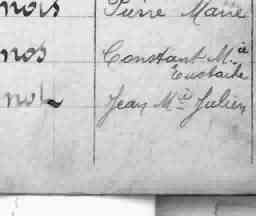 nois Pierre Marie
nos Constant M.ie
Eustache
not Jean M.ie Julien